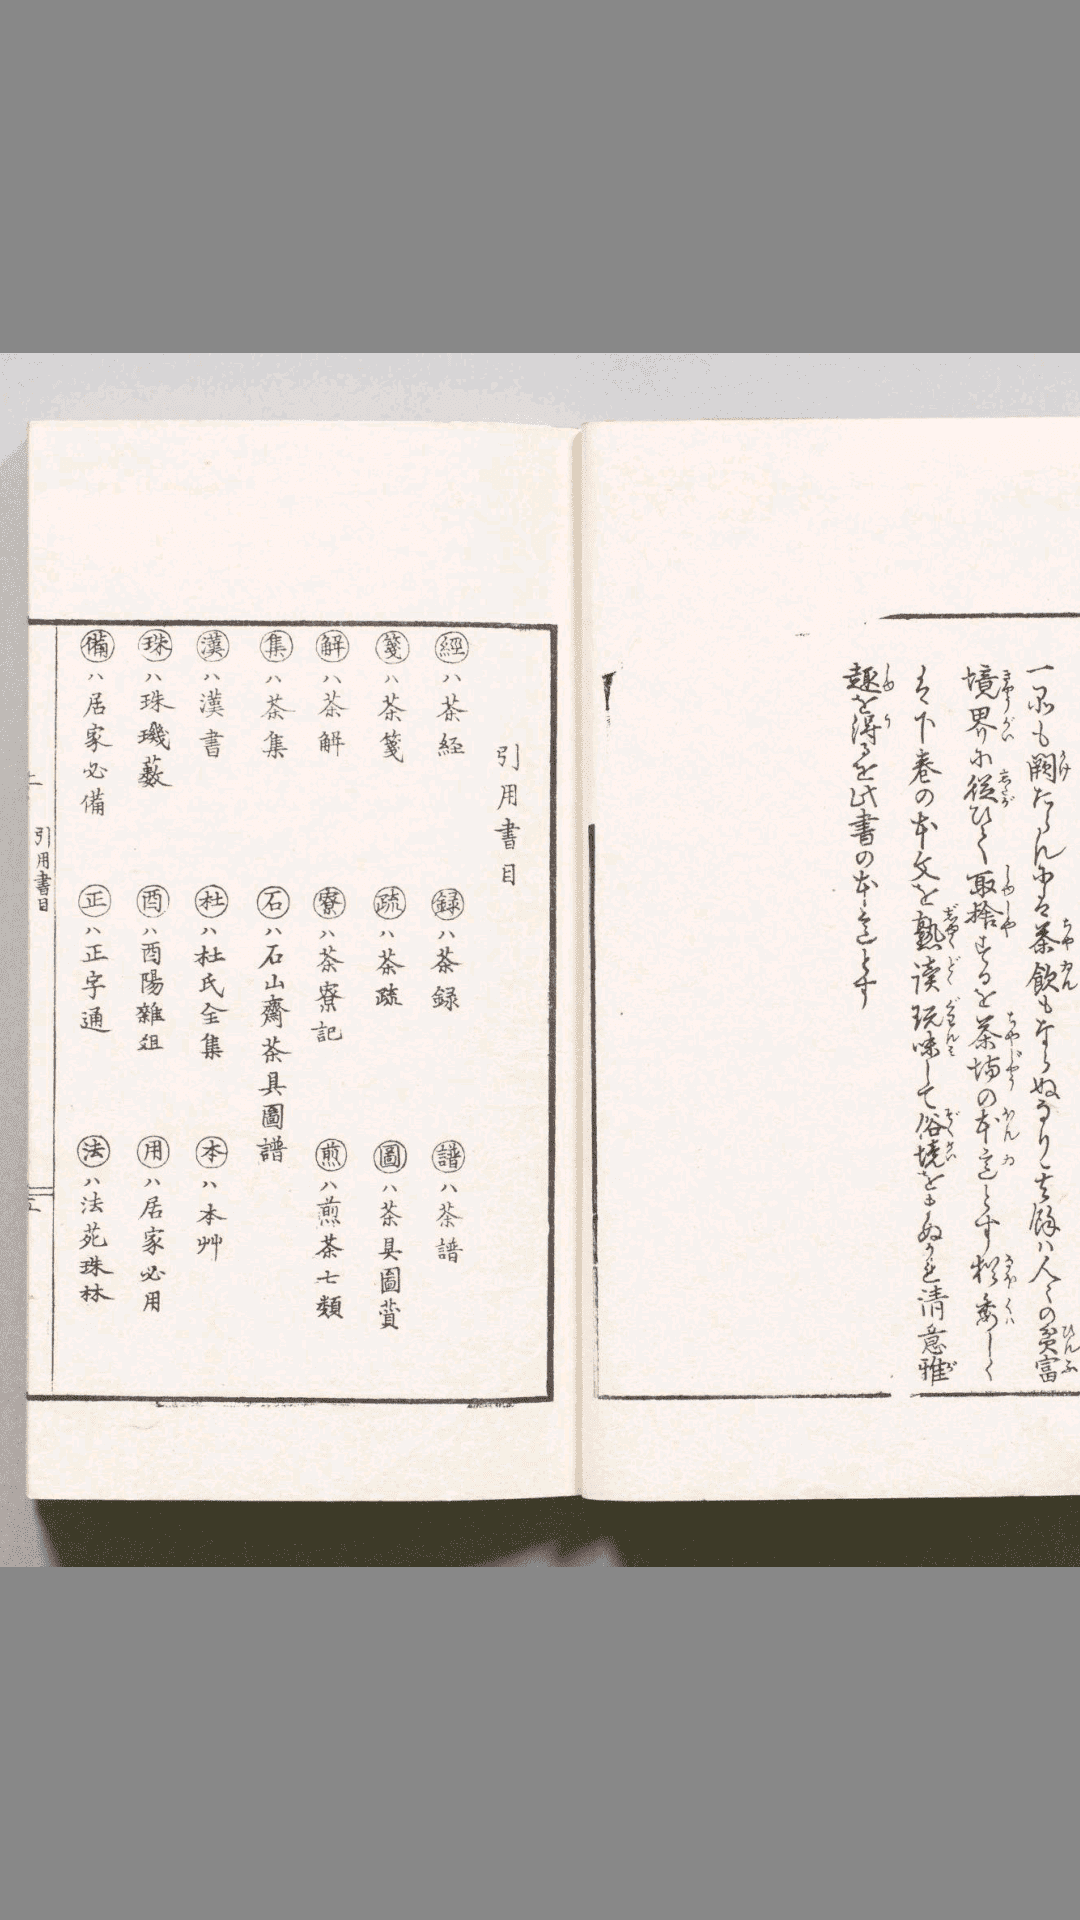 一品も闕たらんにハ茶飲もならぬなり其餘ハ人々の貧富
境界に從ひて取捨するを茶場の本意とす猶委しく
ハ下卷の本文を熟讀玩味して俗境をまぬかれ清意雅
趣を得るを此書の本意とす
引用書目
經ハ茶経 録ハ茶録 譜ハ茶譜
箋ハ茶箋 疏ハ茶疏 圖ハ茶具圖賛
解ハ茶解 寮ハ茶寮記 煎ハ煎茶七類
集ハ茶集 石ハ石山齋茶具圖譜
漢ハ漢書 杜ハ杜氏全集 本ハ本艸
珠ハ珠璣藪 酉ハ酉陽雜俎 用ハ居家必用
備ハ居家必備 正ハ正字通 法ハ法苑珠林
引用書目